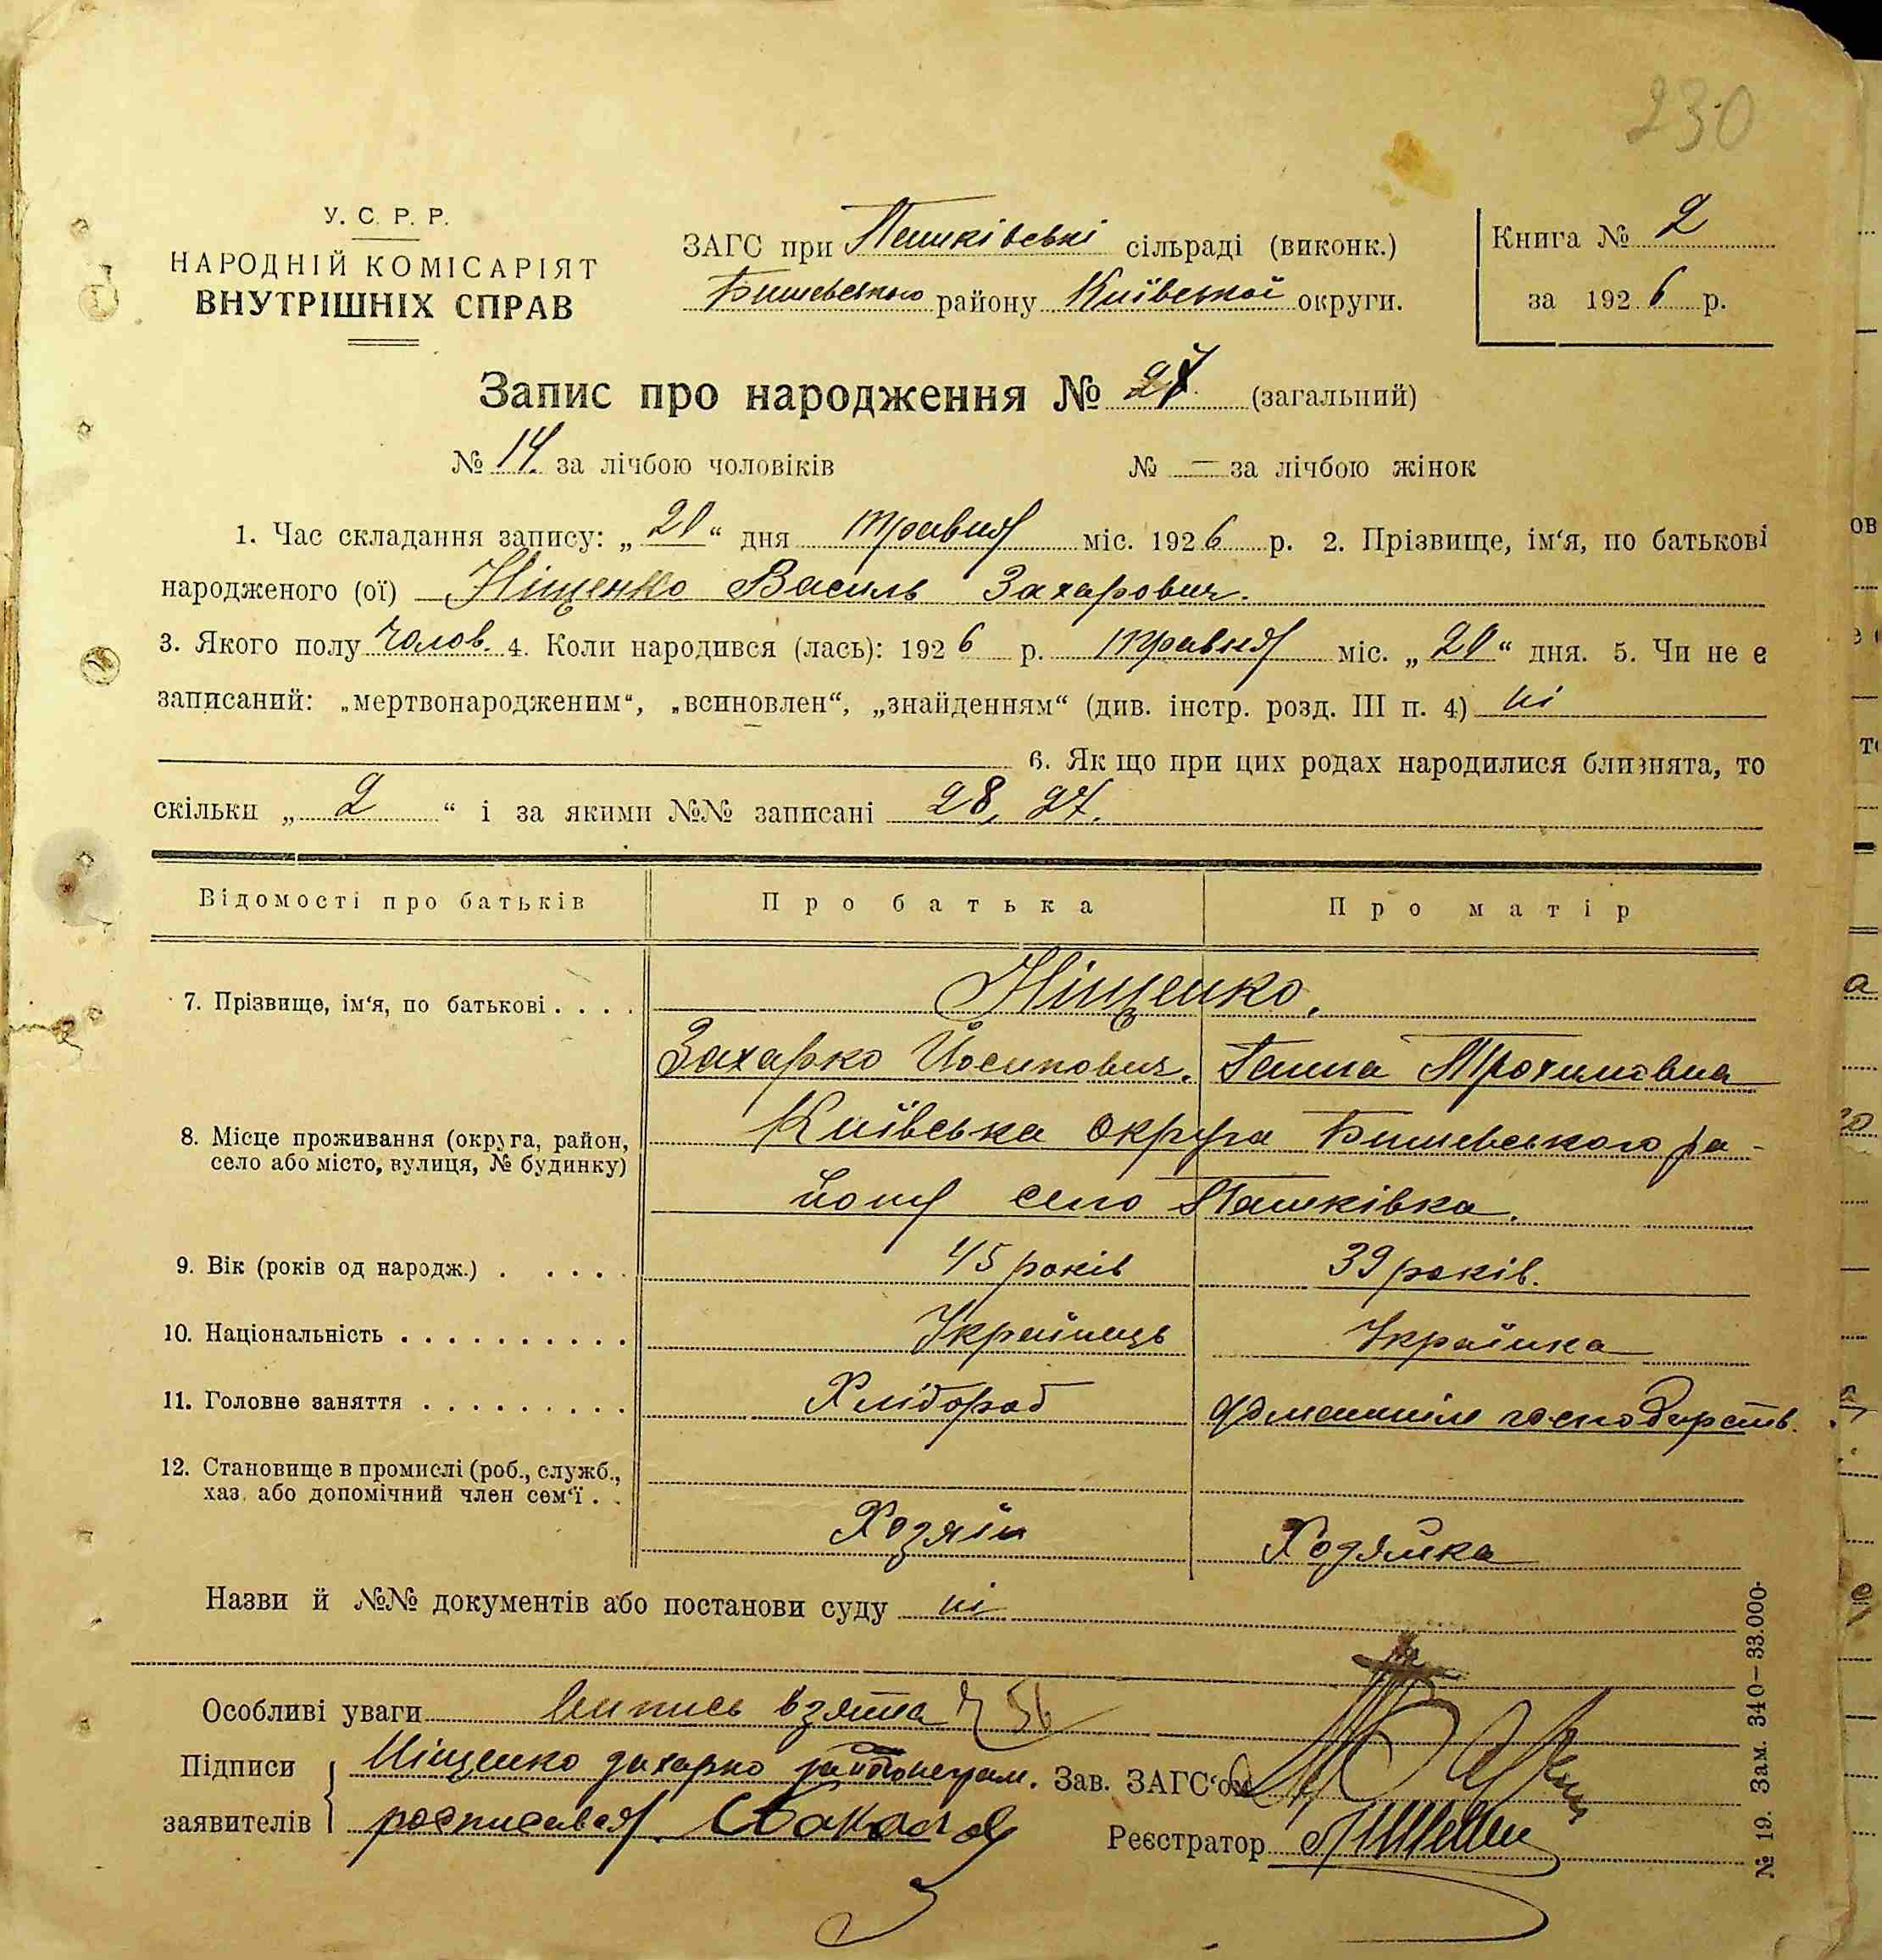 230
У. С. Р. Р.
НАРОДНІЙ КОМІСАРІЯТ
ВНУТРІШНІХ СПРАВ
ЗАГС при Пашківські сільраді (виконк.)
Бишевського району Київської округи.
Книга № 2
за 1926 р.
Запис про народження № 27 (загальний)
№ 14 за лічбою чоловіків № — за лічбою жінок
1. Час складання запису: „20“ дня травня міс. 1926 р. 2. Прізвище, ім'я, по батькові
народженого (ої) Ніщенко Василь Захарович.
3. Якого полу чолов. 4. Коли народився (лась): 1926 р. травня міс. „20“ дня. 5. Чи не є
записаний: „мертвонародженим“, „всиновлен“, „знайденням“ (див. інстр. розд. III п. 4) ні
6. Як що при цих родах народилися близнята, то
скільки „ 2 “ і за якими №№ записані 28, 27.
Відомості про батьків Про батька Про матір
7. Прізвище, ім'я, по батькові . . . . Ніщенко.
Захарко Йосипович. Ганна Трохимовна
8. Місце проживання (округа, район, село або місто, вулиця, № будинку) Київська округа Бишевського ра-
йону село Пашківка.
9. Вік (років од народж.) . . . . . 45 років 39 років.
10. Національність . . . . . . . . . . Українець Українка
11. Головне заняття . . . . . . . . . Хлібороб домашнім господарств.
12. Становище в промислі (роб., служб.,
хаз. або допомічний член сем'ї . . Хозяїн Хозяйка
Назви й №№ документів або постанови суду ні
Особливі уваги випись взята 56
Підписи заявителів Ніщенко Захарко
росписався
Зав. ЗАГС'ом
Реєстратор
№ 19. Зам. 340–33.000